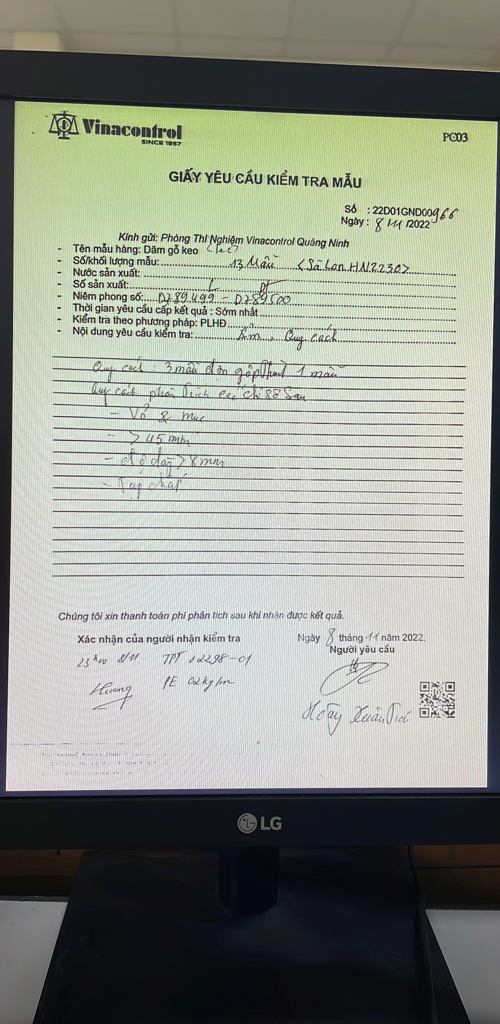 Vinacontrol
SINCE 1957
PC03
GIẤY YÊU CẦU KIỂM TRA MẪU
Số : 22D01GND00966
Ngày : 8/11/2022
Kính gửi: Phòng Thí Nghiệm Vinacontrol Quảng Ninh
- Tên mẫu hàng: Dăm gỗ keo
- Số/khối lượng mẫu: 13 Mẫu <Sà Lan HN2230>
- Nước sản xuất:
- Số sản xuất:
- Niêm phong số: D789499 - D789500
- Thời gian yêu cầu cấp kết quả : Sớm nhất
- Kiểm tra theo phương pháp: PLHĐ
- Nội dung yêu cầu kiểm tra: Ẩm, Quy cách
Quy cách : 3 mẫu đơn gộp thành 1 mẫu
Quy cách phân tích các chỉ số sau
- Vỏ & mục
- > 45 mm
- độ dày > 8 mm
- Tạp chất
Chúng tôi xin thanh toán phí phân tích sau khi nhận được kết quả.
Xác nhận của người nhận kiểm tra
Ngày 8 tháng 11 năm 2022.
Người yêu cầu
23h00 8/11 TPT 12298-01
Huong PE 02kg/m
Xuân
LG